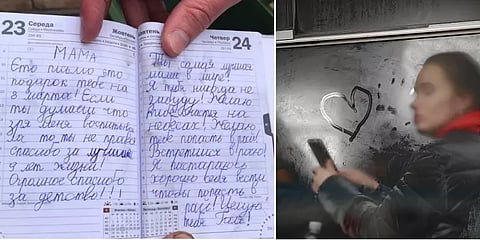 23 Середа
Жовтень
МАМА
Єто письмо это
подарок тебе на
9 марта! Если
ты думаеш что
зря меня воспитывала
то ты не права
спасибо за лучшие
9 лет жизни!
Огромное спасибо
за детство!
Жовтень
Четвер 24
Ты самая лучшая
мама в мире!
Я тебя никогда не
забуду! Желаю
на
небесах! Желаю
тебе попасть в рай!
Встретимся в раю!
Я постараюсь
хорошо себя вести
чтобы попасть в
рай! Целую
тебя Галя!